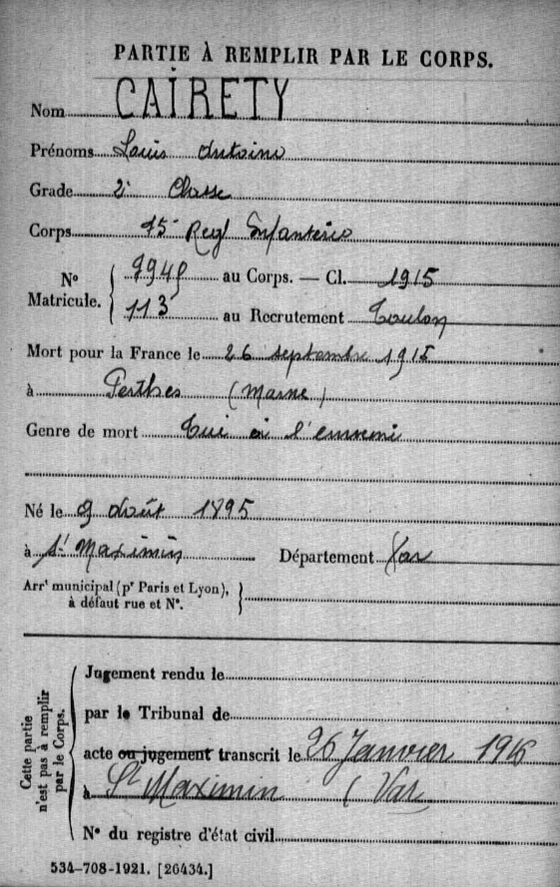 PARTIE À REMPLIR PAR LE CORPS.
Nom CAIRETY
Prénoms Louis Antoine
Grade 2e Classe
Corps 15e Regt Infanterie
No Matricule. au Corps. — Cl. 1915
113 au Recrutement Toulon
Mort pour la France le 26 septembre 1915
à Perthes (Marne)
Genre de mort Tué à l'ennemi
Né le 9 Août 1895
à St Maximin Département Var
Arrt municipal (pr Paris et Lyon),
à défaut rue et No.
Cette partie
n'est pas à remplir
par le Corps.
Jugement rendu le
par le Tribunal de
acte ou jugement transcrit le 26 Janvier 1916
à St Maximin (Var
No du registre d'état civil
534-708-1921. [26434.]